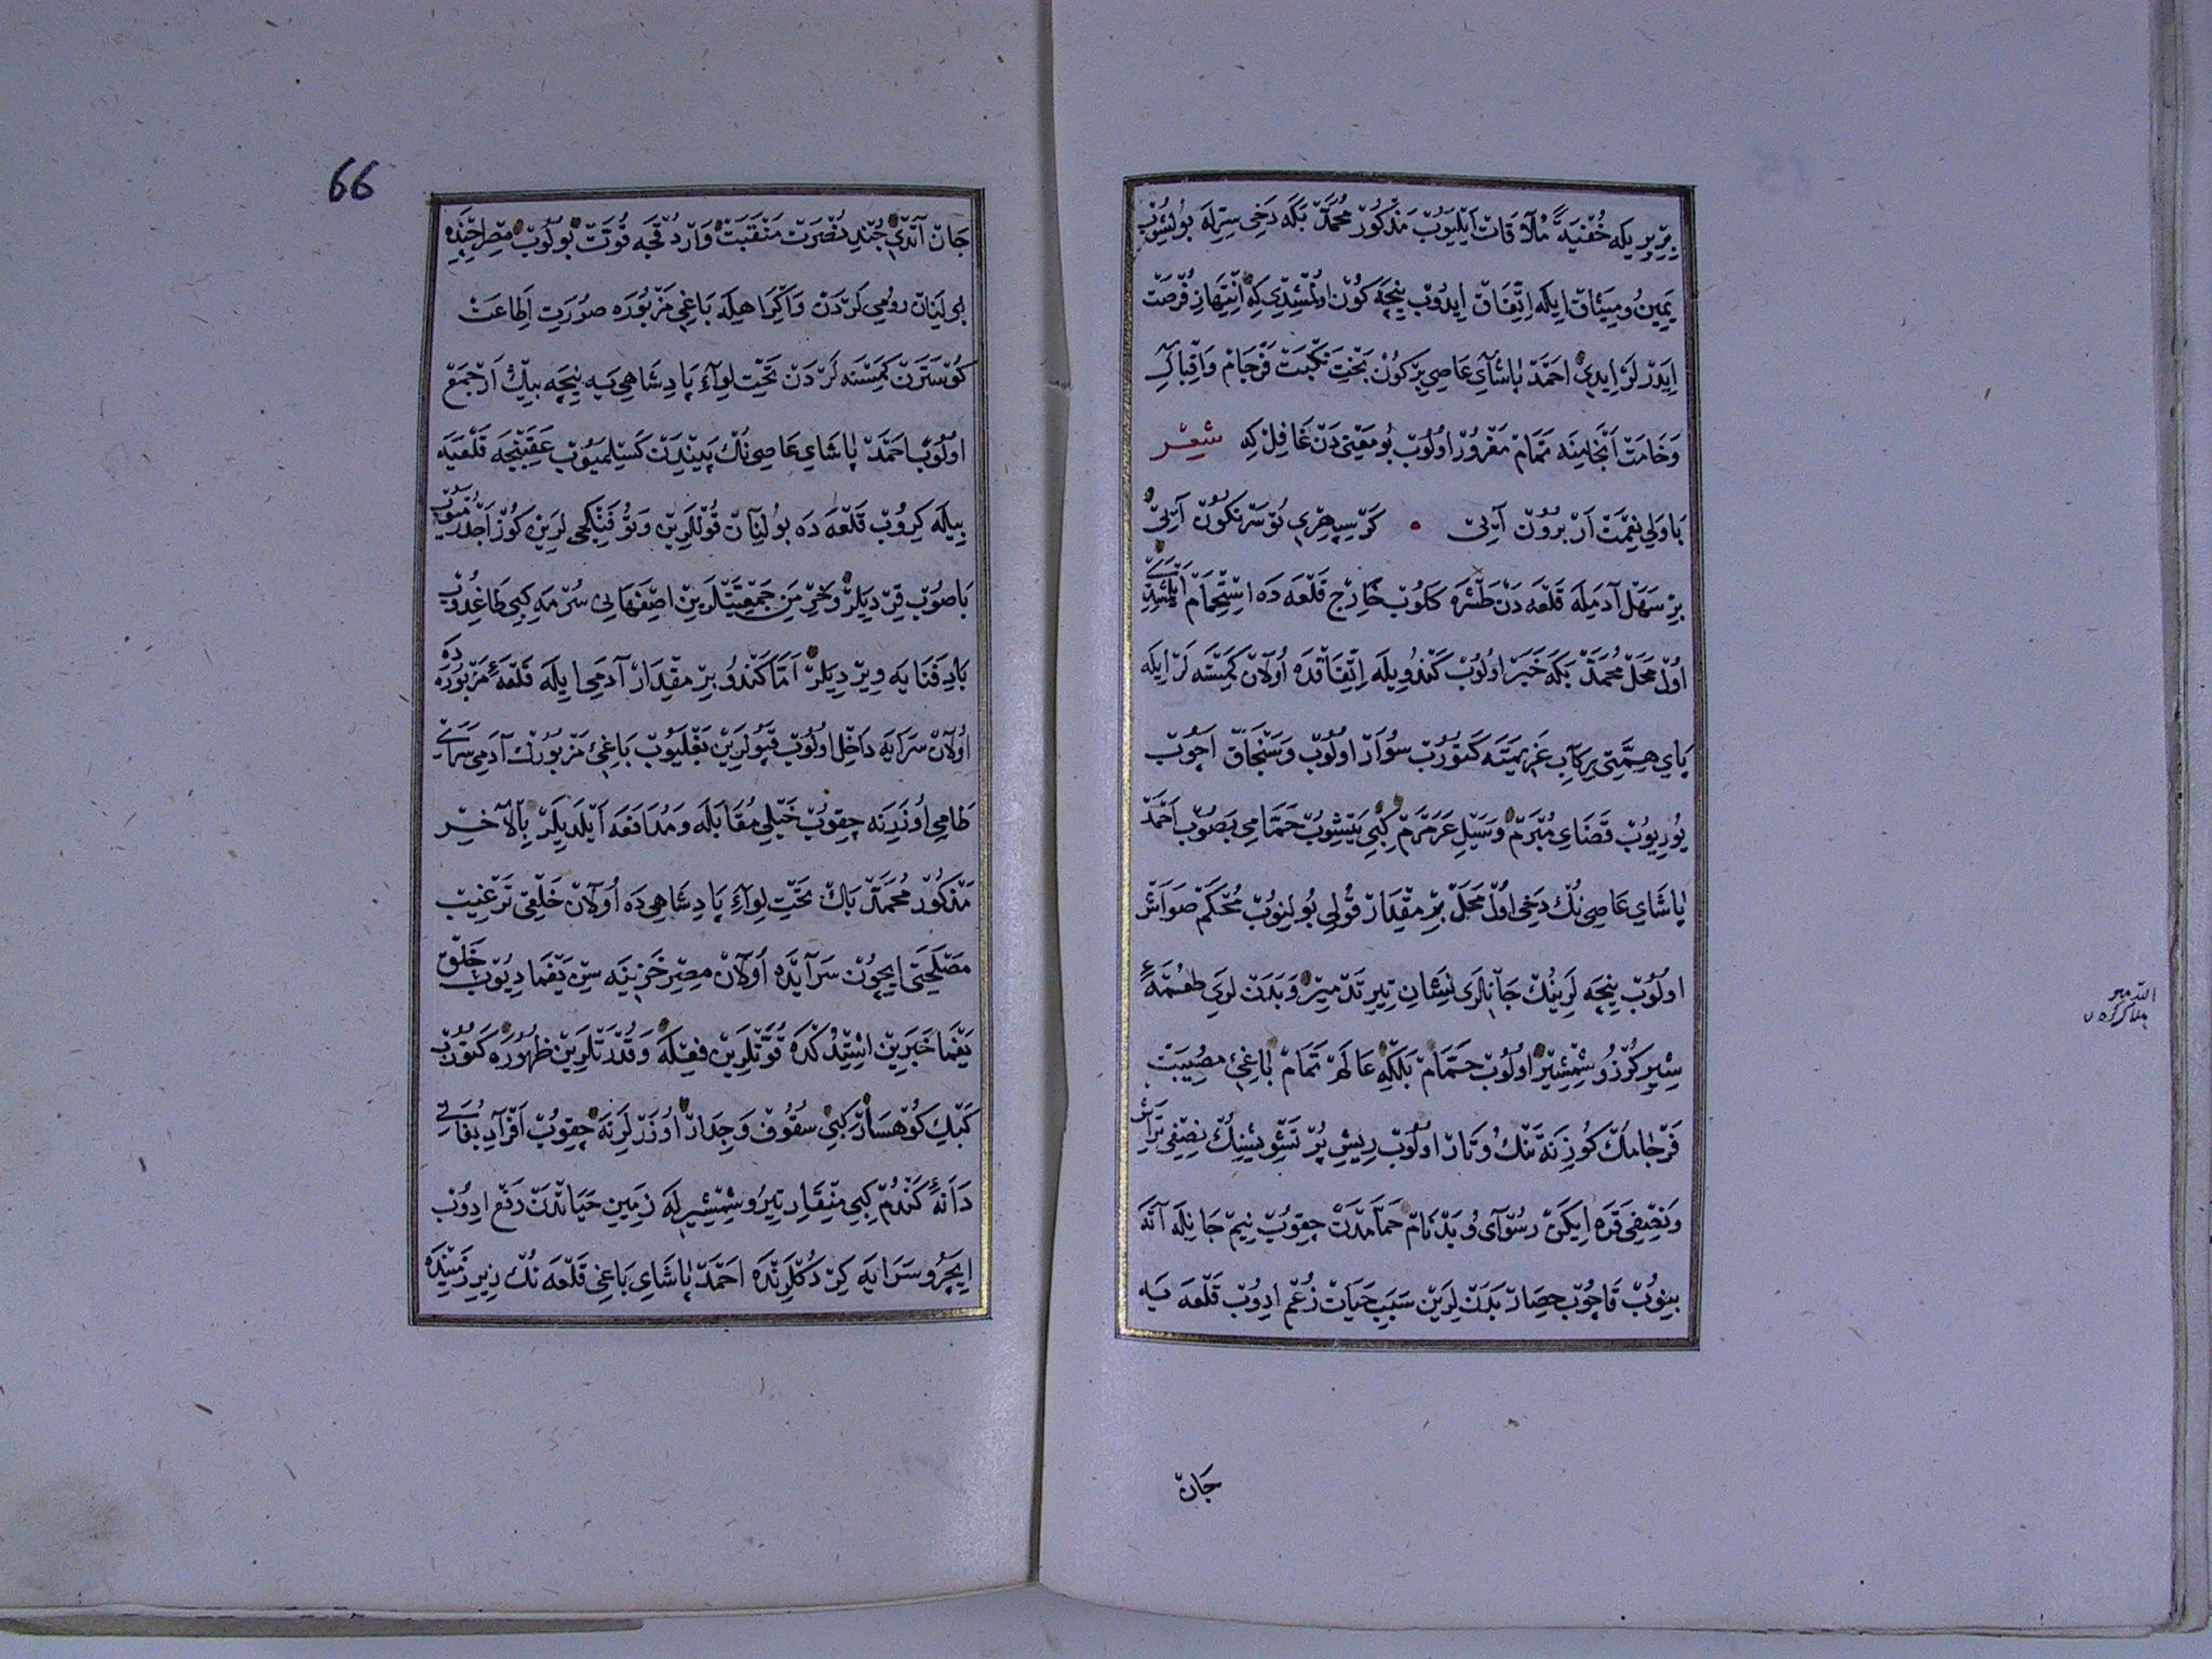 بربريكه خُفْيَةً مُلَاقَات اَيْلَيُوبْ مَذْكُورْ مُحَمَّدْ بَكَه دَخِى سِرِلَه بُولِشُوبْ
يَمِينْ و مِيثَاق ايله اِتِّفَاقْ ايدُوبْ نِيجَه كُونْ اولمشيدى كِه اِنْتِهَازِ فُرْصَتْ
ايدَرْلَرْ ايدِى احمَدْ پاشَآىِ عَاصِى بِرْ كُونْ بَخْتِ نَكْبَتْ فَرْجَامْ وَاِقْبَالِ
وَخَامَتْ اَنْجَامِنَه تَمَامْ مَغْرُورْ اولُوبْ بُو مَعْنَى دَنْ غَافِلْ كِه شِعِرْ
بَاوَلِى نِعْمَتْ اَرْ بُرُونْ آيِى كَرْ سِپِهْرِى تُو سَرْنِكُونْ آيِى
بِرْ سَهَلْ آدَمِلَه قَلْعَه دَنْ طَشْرَه كَلُوبْ خَارِجْ قَلْعَه دَه اسْتِحْمَامْ اَيْلَمِشْدِى
اولْ مَحَلْ مُحَمَّدْ بَكَه خَبَرْ اولُوبْ كَنْدُويِلَه اِتِّفَاقْدَه اُولَانْ كِمْسَنَه لَرْ ايله
پَاىِ هِمَّتِى رِكَابِ عَزِيمَتَه كَتُورُبْ سُوَارْ اولُوبْ وَسَنْجَاقْ اَچُوبْ
يُورِيُوبْ قَضَاىِ مُبْرَمْ وَسَيْلِ عَرَمْرَمْ كِبِى يَتِشُوبْ حَمَّامِى بَصُوبْ اَحْمَدْ
پاشَاىِ عَاصِى نُكْ دَخِى اولْ مَحَلْ بِرْ مِقْدَارْ قُولِى بُولِنُوبْ مُحْكَمْ صَوَاشْ
اولُوبْ نِيجَه لَرِينُكْ جَانْلَرِى نِشَانِ تِيرِ تَدْمِيرْ وَبَدَنْ لَرِى طُعْمَۀ
شِيرِ كُرْزُ و شِمْشِيرْ اولُوبْ حَمَّامْ بَلْكِه عَالَمْ تَمَامْ بَاغِئ مُصِيبَتْ
فَرْجَامُكْ كُوزِنَه تَنْكُ و تَارْ اولُوبْ رِيشِ پُرْ تَشْوِيشِنِكْ نِصْفِى تِرَاشْ
وَنِصْفِى قَرَه اِيكَنْ رُسْوَآىُ و بَدْنَامْ حَمَّامْدَنْ چِقُوبْ نِيمْ جَانِلَه آتَه
بِنُوبْ قَاچُوبْ حِصَارْ بَدَنْ لَرِينْ سَبَبِ حَيَاتْ زُعْمْ ادِوُبْ قَلْعَه يَه
جَانْ
66
جَانْ آتْدِى جُنْدِ نُصْرَتْ مَنْقَبَتْ وَارْدُقْجَه قُوَّتْ بُولُوبْ مِصْرْ ايچنده
بولَنَانْ رومِى لَرْدَنْ وَاِكْرَاهِيلَه بَاغِئ مَزْبُورَه صُورَتِ اِطَاعَتْ
كُوسْتَرَنْ كِمْسَنَه لَرْدَنْ تَحْتِ لِوَآءِ پَادِشَاهِى يَه نِيجَه بِيكْ اَرْ جَمْعْ
اولُوبْ اَحْمَدْ پاشَاىِ عَاصِى نُكْ پَيِنْدَنْ كَسِلْمَيُوبْ عَقِبِنْجَه قَلْعَيَه
بِيلَه كِرُوبْ قَلْعَه دَه بُولِنَانْ قُولْلَرِينْ وَتُوفَنْكْجِى لَرِينْ كُوزْ اَچْدُرْمَيُوبْ
بَاصُوبْ قِرْدِيلَرْ وَخِرْمَنِ جَمْعِيَّتْلَرِينْ اِصْفَهَانِى سُرْمَه كِبِى طَاغِدُوبْ
بَادِ فَنَايَه وِيرْدِيلَرْ اَمَّا كَنْدُو بِرْ مِقْدَارْ آدَمِى ايله قَلْعَۀ مَزْبُورَه دَه
اُولَانْ سَرَايَه دَاخِلْ اولُوبْ قَپُولَرِينْ بَغْلَيُوبْ بَاغِئ مَزْبُورُكْ آدَمِى سَرَاىْ
طَامِى اُوزَرِنَه چِقُوبْ خَيْلِى مُقَابَلَه وَمُدَافَعَه اَيْلَدِيلَرْ بِالْآخِرْ
مَذْكُورْ مُحَمَّدْ بَكْ تَحْتِ لِوَآءِ پَادِشَاهِى دَه اُولَانْ خَلْقِى تَرْغِيبْ
مَصْلَحَتِى ايچُونْ سَرَآيْدَه اُولَانْ مِصِرْ خَزِينَه سِنْ يَغْمَا دِيُوبْ خَلْقْ
يَغْمَا خَبَرِينْ اِشِتْدُكْدَه قُوَّتْلَرِينْ فِعْلَه وَقُدْرَتْلَرِينْ ظُهُورَه كَتُورُبْ
كَبْكِ كُوهْسَارْ كِبِى سُقُوفْ وَجِدَارْ اُوزَرْلَرِنَه چِقُوبْ اَفْرَادِ بُغَاتِى
دَانَۀ كَنْدُمْ كِبِى مِنْقَارِ تِيرُ و شِمْشِيرِلَه زَمِينِ حَيَاتْدَنْ رَفْعْ ادِوُبْ
ايچَرُو سَرَايَه كِرْدُكْلَرِنْدَه اَحْمَدْ پاشَاىِ بَاغِى قَلْعَه نُكْ زِيرِ زَمِينِنْدَه